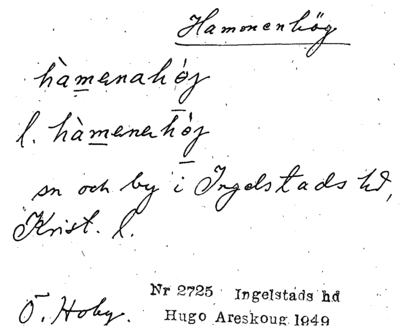 Hammenhög
hàmenahöj
l. hàmenerhöj
sn och by i Ingelstads hd,
Krist. l.
Nr 2725 Ingelstads hd
Ö. Hoby. Hugo Areskoug 1949